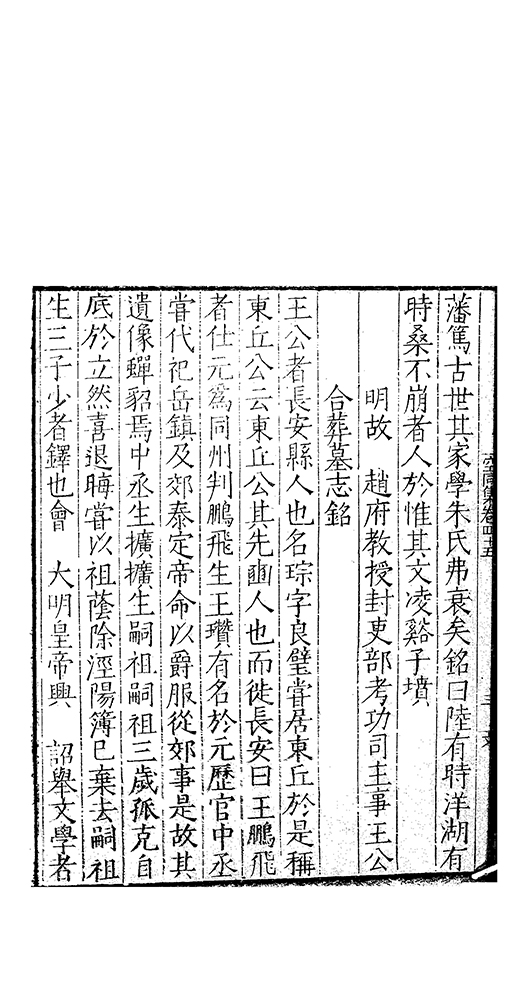 藩篤古世其家學朱氏弗衰矣銘曰陸有時洋湖有
時桑不崩者人於惟其文凌谿子墳
明故　趙府教授封吏部考功司主事王公
合葬墓志銘
王公者長安縣人也名琮字良璧嘗居東丘於是稱
東丘公云東丘公其先豳人也而徙長安曰王鵬飛
者仕元為同州判鵬飛生王瓚有名於元歷官中丞
嘗代祀岳鎮及郊泰定帝命以爵服從郊事是故其
遺像蟬貂焉中丞生擴擴生嗣祖嗣祖三歲孤克自
底於立然喜退晦嘗以祖蔭除涇陽簿已棄去嗣祖
生三子少者鐸也會　大明皇帝興　詔舉文學者
空同集卷四十五